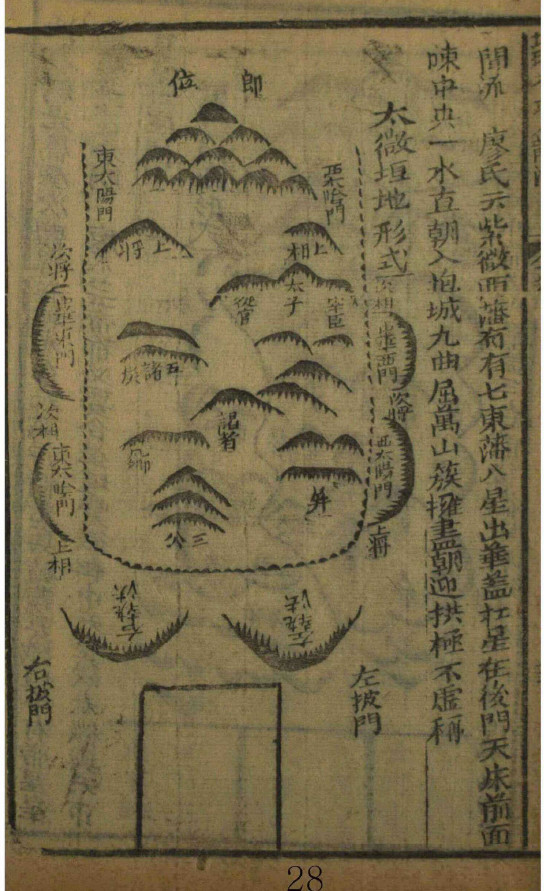 開流 廖氏云紫微西藩有七東藩八星出華蓋杠星在後門天床前面
陳中央一水直朝入垣城九曲屈萬山簇擁盡朝迎拱極不虛稱
太微垣地形式
郎位
西太陰門
東太陽門
上相
上將
太子
從官
幸臣
次相
中華西門
次將
次將
中華東門
次相
五諸侯
謁者
西太陽門
東太陰門
上將
上相
卿
屏
三公
左執法
右執法
左掖門
右掖門
28